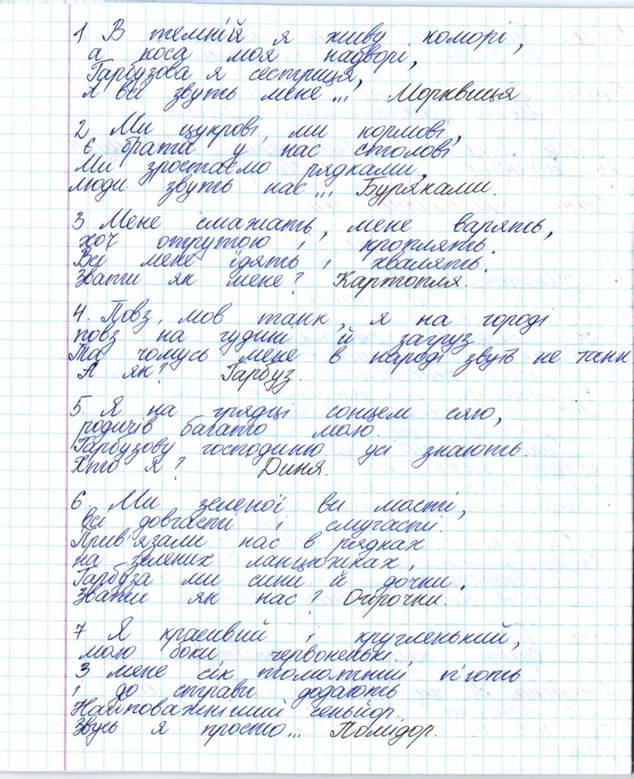 1. В темній я живу коморі,
а коса моя надворі,
Гарбузова я сестриця,
А всі звуть мене... Морквиця
2. Ми цукрові, ми кормові,
Є брати у нас столові
Ми зростаємо рядками,
люди звуть нас... Буряками.
3 Мене смажать, мене варять,
хоч отрутою і кроплять.
Всі мене їдять і хвалять.
Звати як мене? Картопля.
4. Повз, мов танк, я на городі
повз на гудині й загруз
Та чомусь мене в народі звуть не танк
А як? Гарбуз.
5. Я на грядці сонцем сяю,
родичів багато маю
Гарбузову господиню усі знають.
Хто я? Диня.
6 Ми зеленої всі масті,
всі довгасті і смугасті.
Прив'язали нас в рядках
на зелених ланцюжках.
Гарбуза ми сини й дочки.
Звати як нас? Огірочки.
7 Я красивий і кругленький,
маю боки червоненькі.
З мене сік томатний п'ють
і до страви додають
Найповажніший сеньйор.
Звусь я просто... Помідор.